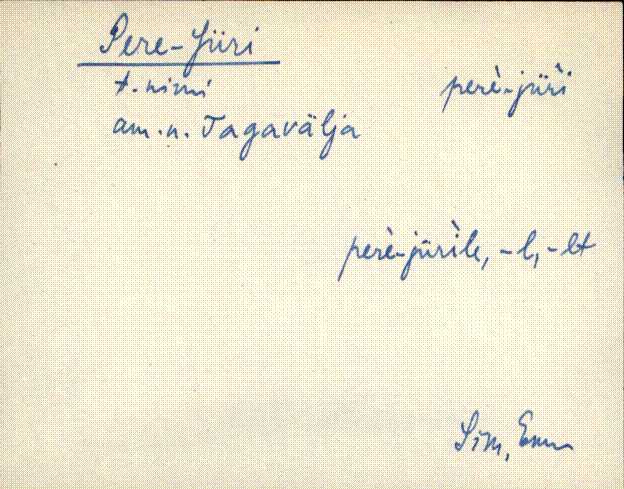 Pere-Jüri
t. nimi perè-jüri̬
am. n. Tagavälja
perè-jürìle, -l, -lt
Sim, Emu